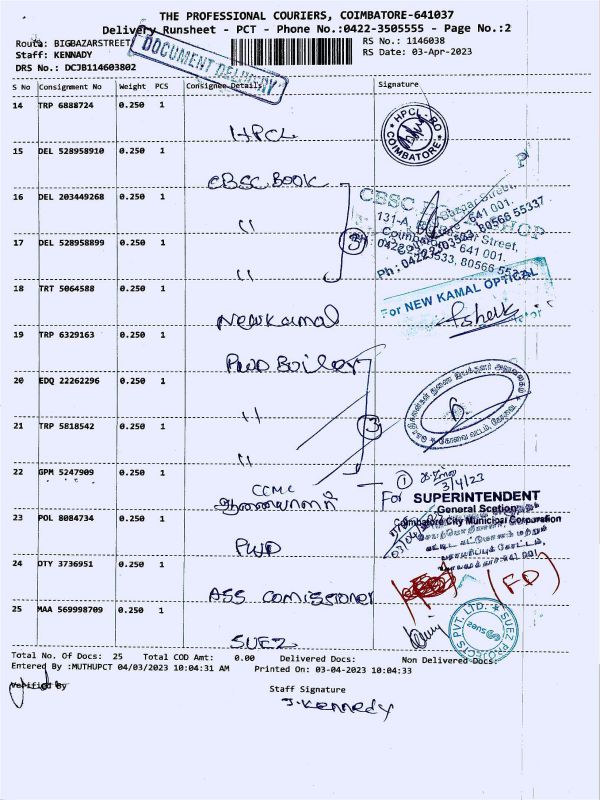 THE PROFESSIONAL COURIERS, COIMBATORE-641037
Delivery Runsheet - PCT - Phone No.:0422-3505555 - Page No.:2
Route: BIGBAZARSTREET
RS No.: 1146038
Staff: KENNADY
RS Date: 03-Apr-2023
DRS No.: DCJB114603802
DOCUMENT DELIVERY
S No Consignment No Weight PCS Consignee Details Signature
14 TRP 6888724 0.250 1
HPCL
HPCL-RO
COIMBATORE
15 DEL 528958910 0.250 1
CBSC BOOK
16 DEL 203449268 0.250 1
"
CBSC
131-A
641 001.
Ph : 0422-2303533, 80566 55337
17 DEL 528958899 0.250 1
"
3
18 TRT 5064588 0.250 1
New Kamal
For NEW KAMAL OPTICAL
19 TRP 6329163 0.250 1
PWD Boiler
20 EDQ 22262296 0.250 1
"
21 TRP 5818542 0.250 1
"
3
22 GPM 5247909 0.250 1
CCMC
ஆணையாளர்
1
3/4/23
For SUPERINTENDENT
General Scetion
Coimbatore City Municipal Corporation
23 POL 8084734 0.250 1
PWD
24 DTY 3736951 0.250 1
ASS Comissioner
(FD)
25 MAA 569998709 0.250 1
SUEZ
SUEZ PROJECTS PVT. LTD.
suez
Total No. Of Docs: 25 Total COD Amt: 0.00 Delivered Docs: Non Delivered Docs:
Entered By :MUTHUPCT 04/03/2023 10:04:31 AM Printed On: 03-04-2023 10:04:33
Verified By
Staff Signature
J. Kennedy